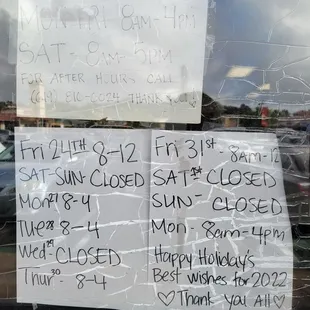 MON-FRI 8am-4pm
SAT- 8am-5pm
FOR AFTER HOURS CALL
THANK YOU
Fri 24TH 8-12
SAT-SUN-CLOSED
Mon 27 8-4
Tue 28 8-4
Wed 29-CLOSED
Thur 30- 8-4
Fri 31st-8AM-12
SAT 1st CLOSED
SUN- CLOSED
Mon- 8am-4pm
Happy Holiday's
Best wishes for 2022
♡Thank you All♡